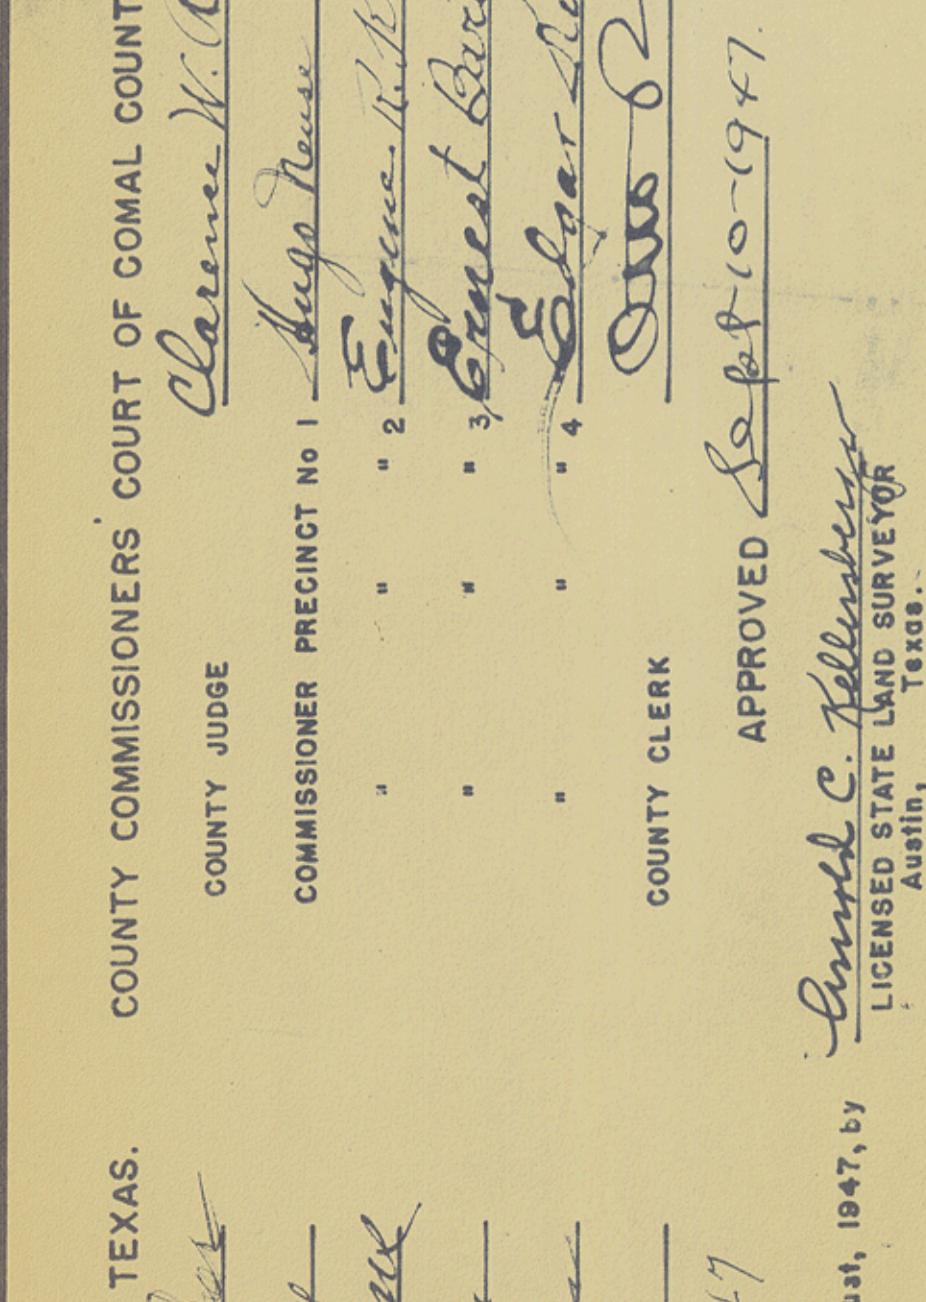 TEXAS.
COUNTY COMMISSIONERS' COURT OF COMAL COUNT
COUNTY JUDGE Clarence W.
COMMISSIONER PRECINCT No 1 Hugo Neuse
" " " 2 Eugene R. K
" " " 3 Ernest Bar
" " " 4 Edgar
COUNTY CLERK Otto
APPROVED Sept-10-1947.
ust, 1947, by Arnold C. Kellersberger
LICENSED STATE LAND SURVEYOR
Austin, Texas.